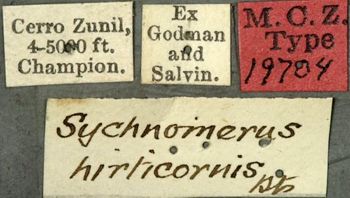 Cerro Zunil,
4-5000 ft.
Champion.
Ex
Godman
and
Salvin.
M. C. Z.
Type
19784
Sychnomerus
hirticornis